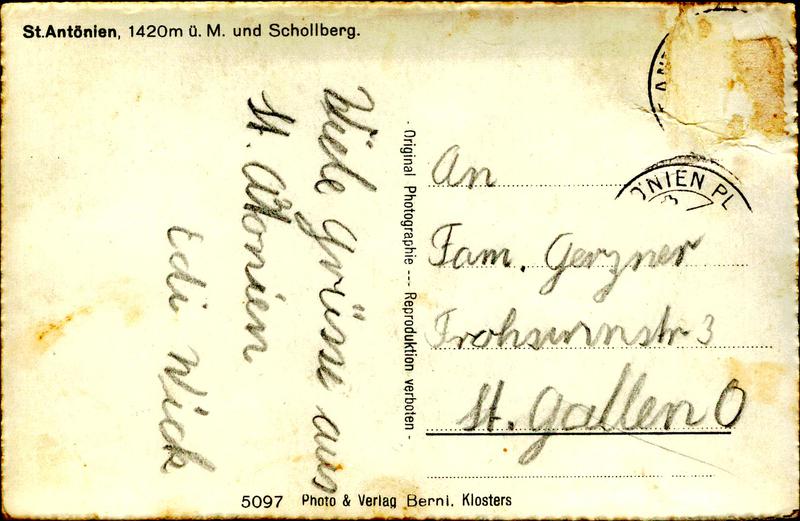 St.Antönien, 1420m ü. M. und Schollberg.
Viele Grüsse aus
St. Antonien
Edi Wick
- Original Photographie --- Reproduktion verboten -
An
Fam. Gerzner
Frohsinnstr. 3
St. Gallen O
ÖNIEN PL
5097 Photo & Verlag Berni, Klosters